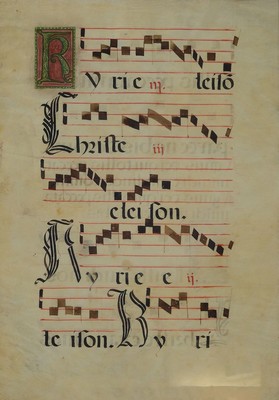 Kyrie iij. leisō
Christe iij
eleison.
Kyrie e ij.
leison. Kyri